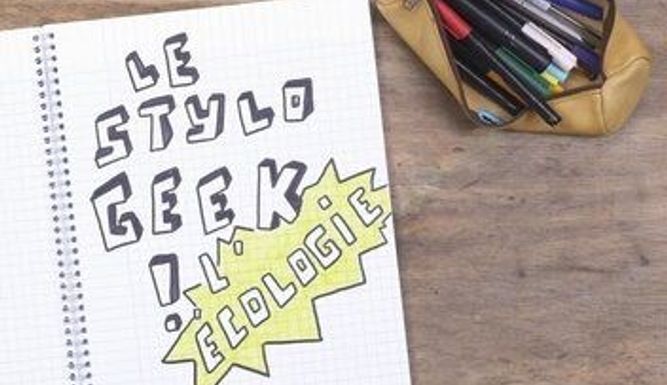 LE
STYLO
GEEK
!
L'
ÉCOLOGIE